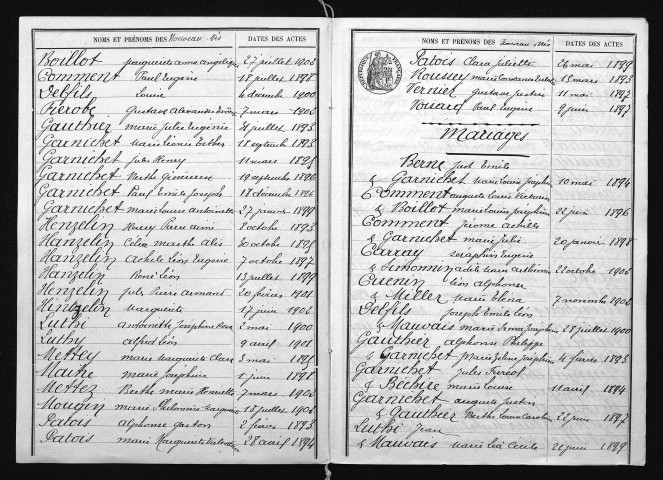 NOMS ET PRÉNOMS DES Nouveau Nés DATES DES ACTES
Boillot anne angélique 27 juillet 1902
Comment Paul Eugène 18 juillet 1898
Delfils Louise 4 décembre 1900
Fierobe Gustave Alexandre 7 mars 1902
Gauthier marie Julie Eugénie 31 juillet 1893
Garnichet marie Léonie Esther 18 septembre 1893
Garnichet Jules Henry 11 mars 1895
Garnichet Berthe Génereuse 19 septembre 1896
Garnichet Paul Emile Joseph 18 décembre 1896
Garnichet marie Louise Antoinette 27 janvier 1899
Henzelin Henry Pierre aimé 1 octobre 1893
Hanzelin Célia marthe 30 octobre 1895
Hanzelin Achile Léon Eugène 7 octobre 1897
Hanzelin René Léon 13 juillet 1899
Henzelin Jules Pierre armand 20 février 1901
Hintzelin marguerite 17 juin 1902
Luthi antoinette Joséphine 2 mai 1900
Luthy alfred Léon 9 avril 1901
Mettey marie marguerite Clara 3 mai 1895
Maitre marie Joséphine 1 juin 1898
Mettez Berthe marie Henriette 7 mars 1902
Mougin marie Philomène 12 juillet 1902
Patois alphonse gaston 2 février 1893
Patois marie Marguerite Valentine 28 avril 1894
NOMS ET PRÉNOMS DES Nouveau Nés DATES DES ACTES
Patois Clara Juliette 26 mai 1899
Roussey marie 15 mars 1893
Vernier gustave Justin 11 mai 1892
Vouard Paul Eugène 9 juin 1897
Mariages
Berne Just Emile
& Garnichet marie Louise Joséphine 10 mai 1894
Comment auguste Louis
& Boillot marie Louise Joséphine 22 juin 1896
Comment Jérome achille
& Garnichet marie Julie 20 janvier 1898
Carray séraphin Eugène
& Simonnin adèle marie 22 octobre 1902
Cuenin Léon alphonse
& Miller marie Eléna 7 novembre 1902
Delfils Joseph Emile Léon
& Mauvais marie Irma Joséphine 28 juillet 1900
Gauthier alphonse Philippe
& Garnichet marie Zéline Joséphine 4 février 1893
Garnichet Jules
& Béchire marie Louise 11 avril 1894
Garnichet auguste Justin
& Gauthier Berthe Louise Caroline 22 juin 1897
Luthi Jean
& Mauvais marie Léa Cécile 20 juin 1899